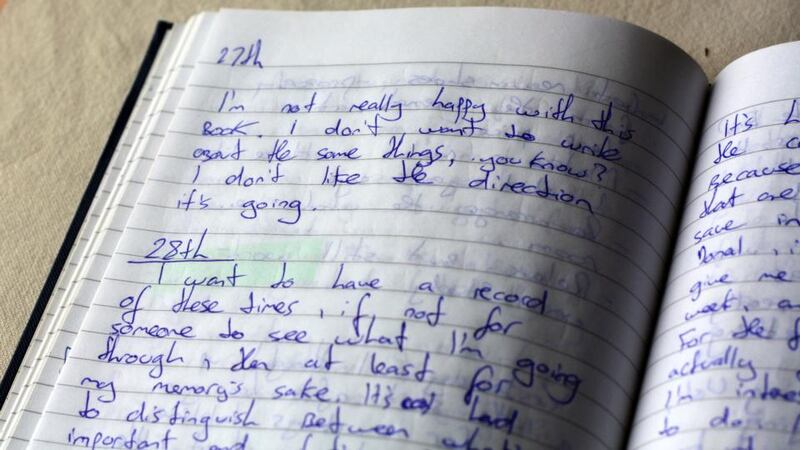 27th
I'm not really happy with this
Book. I don't want to write
about the same things, you know?
I don't like the direction
it's going.
28th
I want to have a record
of these times, if not for
someone to see what I'm going
through, then at least for
my memory's sake. It's had
to distinguish Between
important and
It's
the
Because
that are
save in
Donal, i
give me
week, a
For the f
actually
I'm
to do